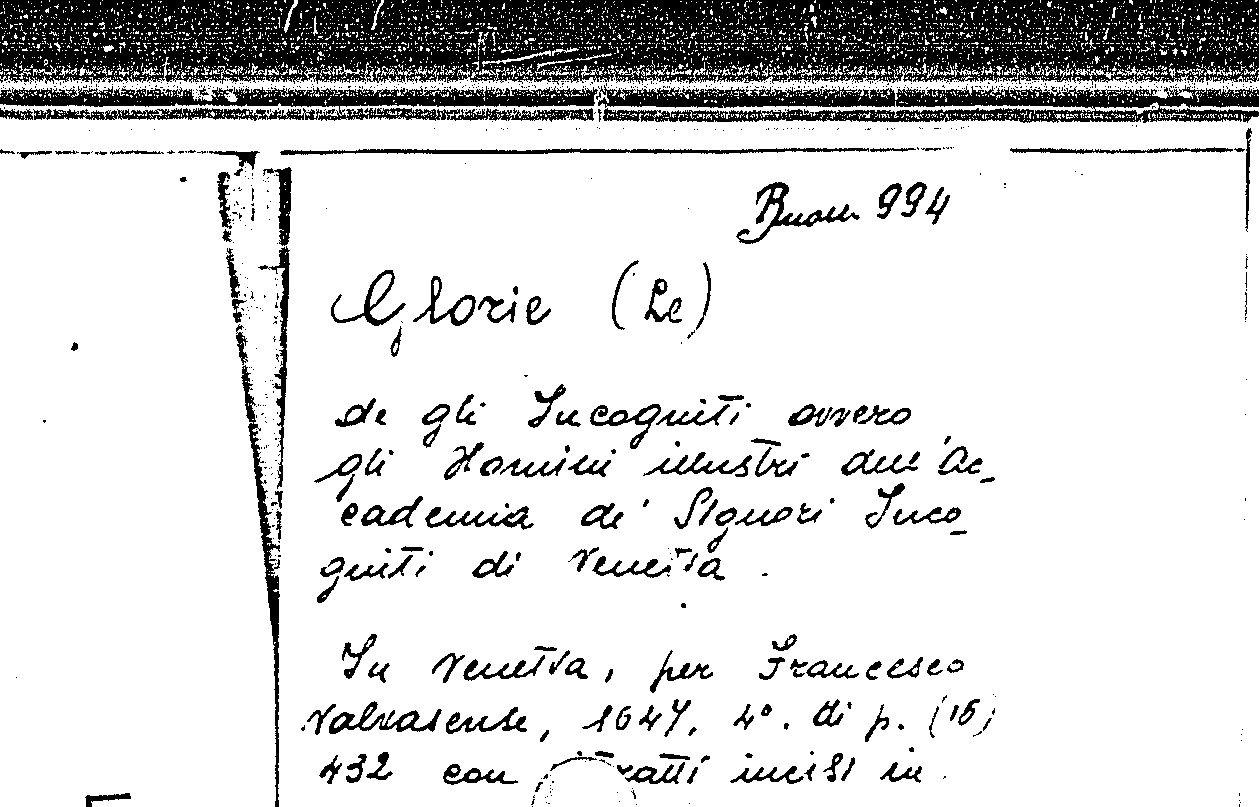 Buon. 994
Glorie (Le)
de gli Incogniti ovvero
gli Homini illustri dell'Ac-
cademia de' Signori Inco-
gniti di Venetia.
In Venetia, per Francesco
Valvasense, 1647. 4°. di p. (16)
432 con ritratti incisi in